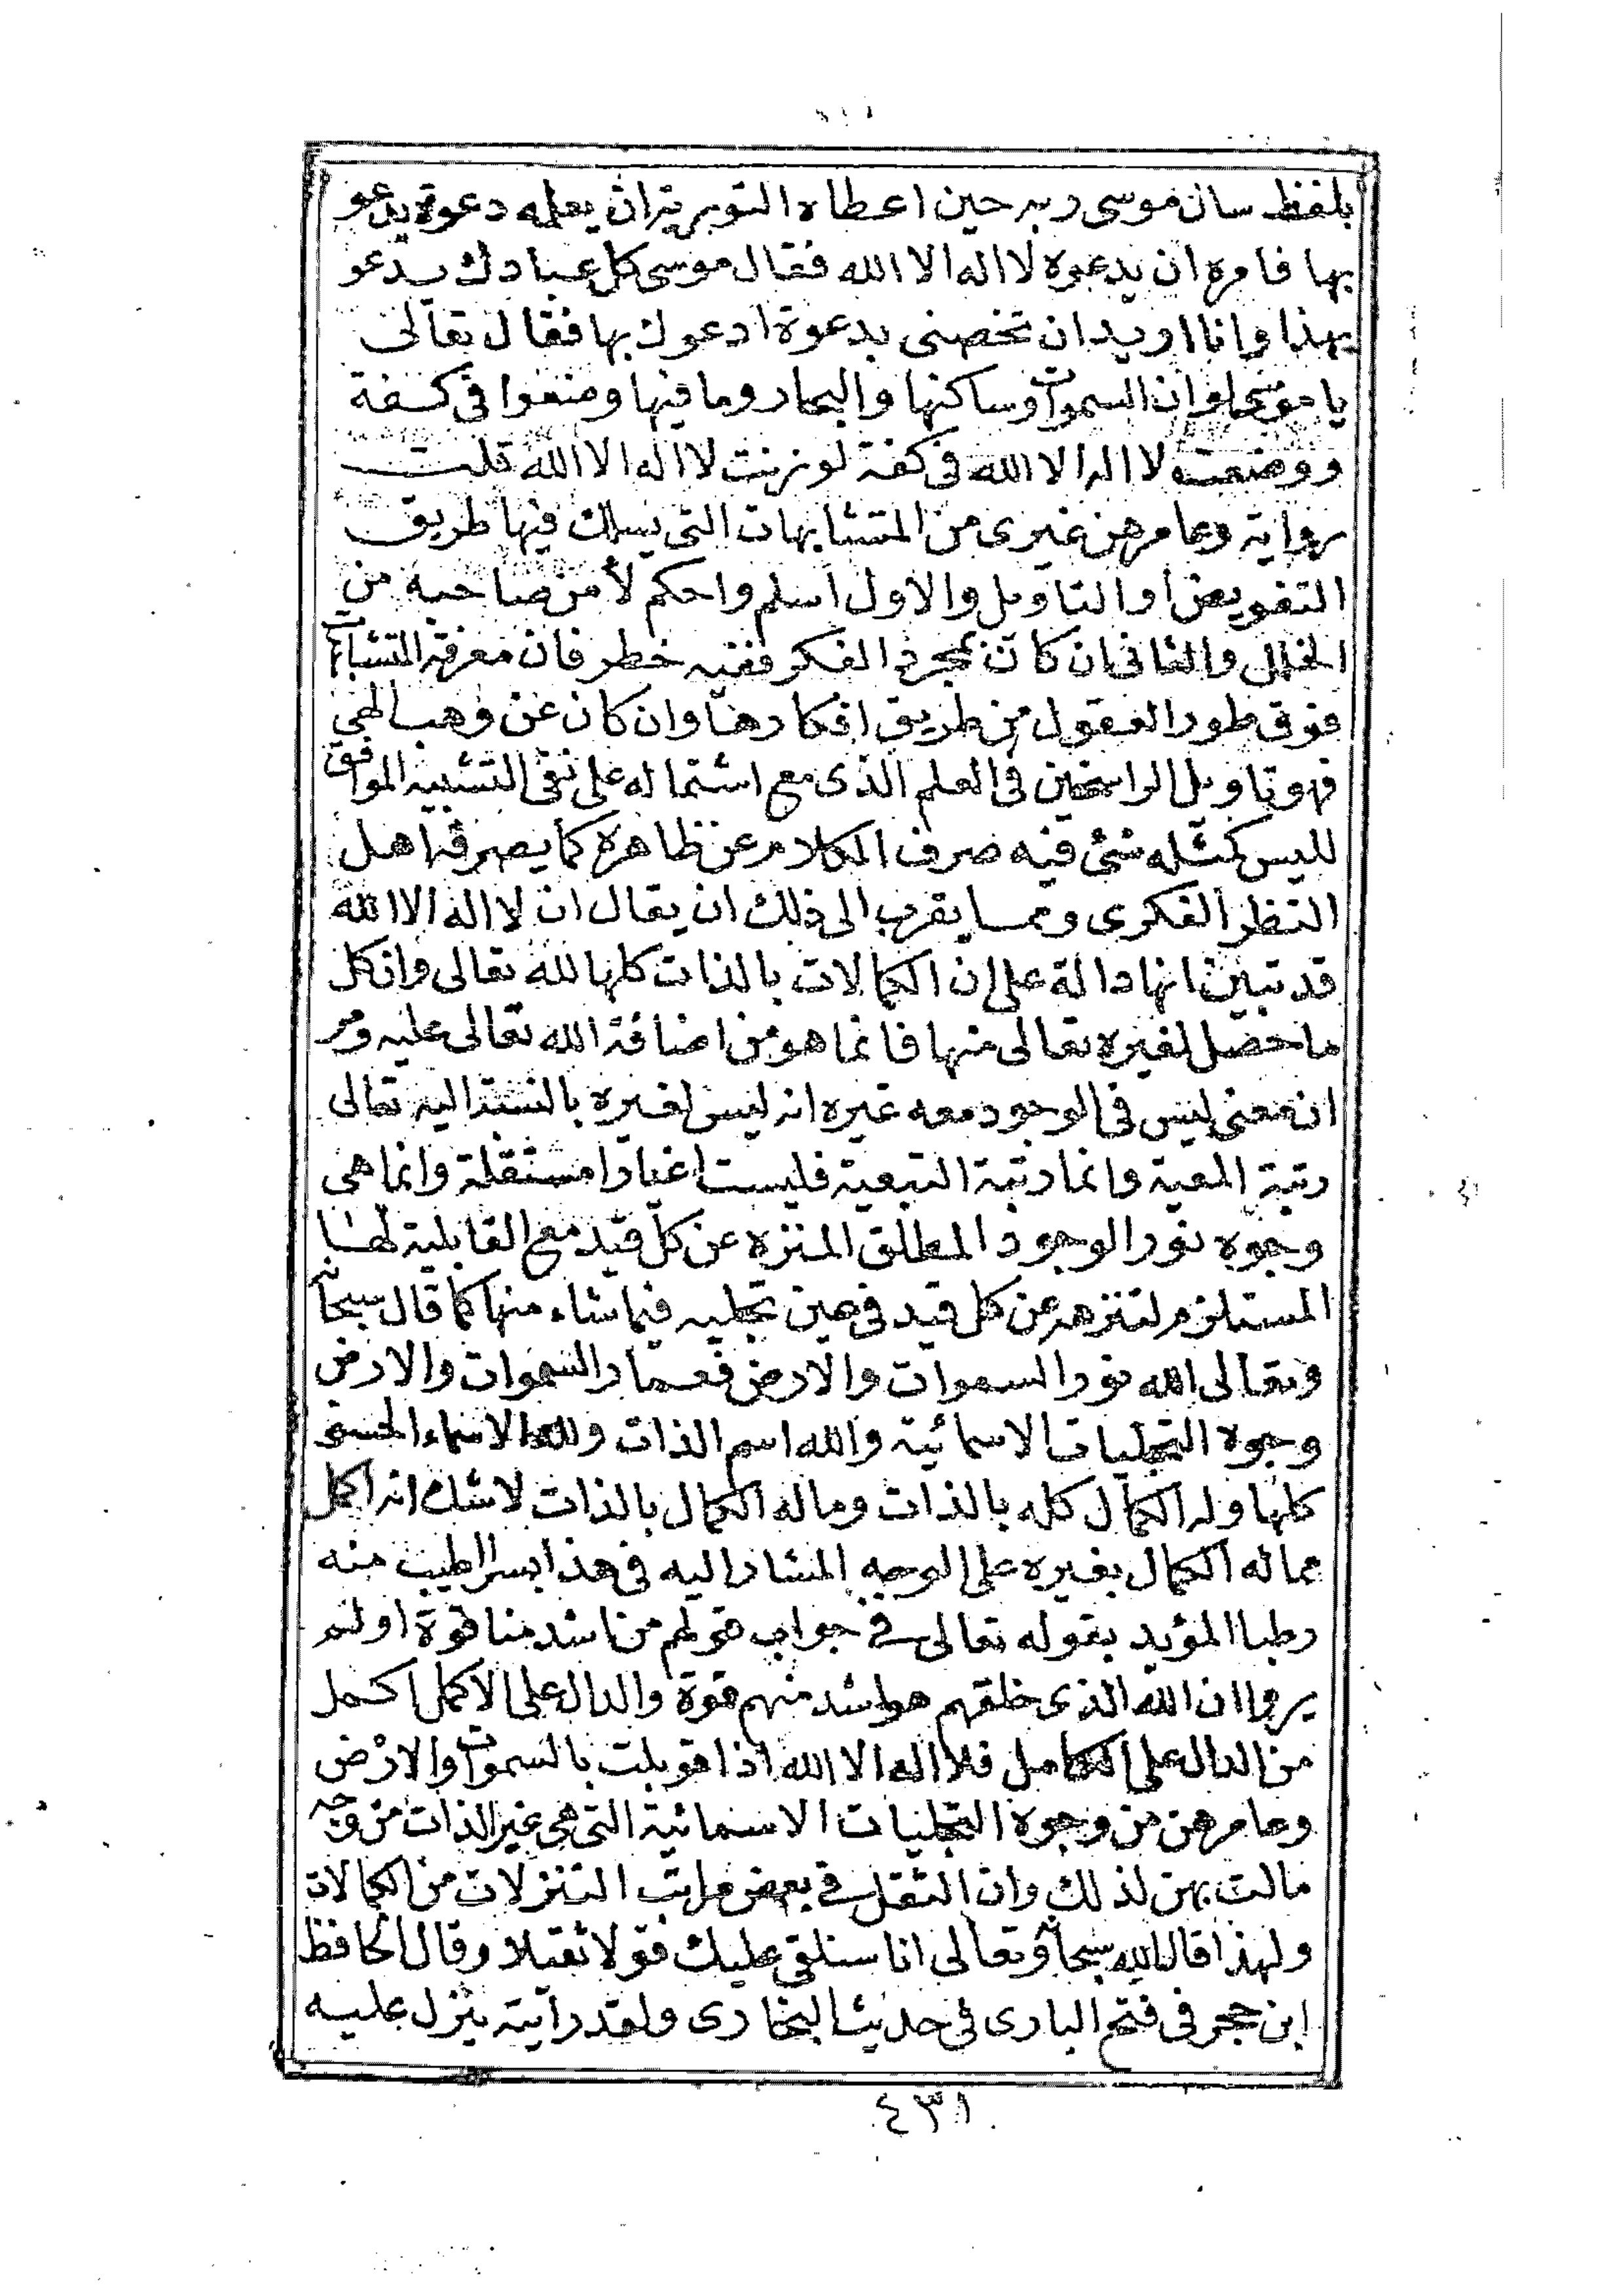 بلفظ سان موسى ربه حين اعطاه التورية ان يعلمه دعوة يدعو
بها فامره ان يدعوه لا اله الا الله فقال موسى كل عبادك يدعو
بهذا وانا اريد ان تخصنى بدعوة ادعوك بها فقال تعالى
يا موسى لو ان السموات وساكنها والبحار وما فيها وضعوا فى كفة
ووضعت لا اله الا الله فى كفة لوزنت لا اله الا الله قلت
رواية وعامرهن غيرى من المتشابهات التى يسلك فيها طريق
التفويض او التاويل والاول اسلم واحكم لأمن صاحبه من
الخلل والثانى ان كان بمجرد الفكر ففيه خطر فان معرفة المتشابه
فوق طور العقول من طريق افكارها وان كان عن وهب الهى
فهو تاويل الراسخين فى العلم الذى مع اشتماله على نفى التشبيه الموافق
لليس كمثله شئ فيه صرف الكلام عن ظاهره كما يصرفه اهل
النظر الفكرى ومما يقرب الى ذلك ان يقال ان لا اله الا الله
قد تبين انها دالة على ان الكمالات بالذات كلها لله تعالى وان كل
ما حصل لغيره تعالى منها فانما هو من اضافة الله تعالى عليه ومر
ان معنى ليس فى الوجود معه غيره انه ليس لغيره بالنسبة اليه تعالى
رتبة المعية وانما رتبة التبعية فليست اغيارا مستقلة وانما هى
وجوه نور الوجود المطلق المنزه عن كل قيد مع القابلية لها
المستلزم لتنزهه عن كل قيد فى حين تجليه فيما شاء منها كما قال سبحانه
وتعالى الله نور السموات والارض فعمار السموات والارض
وجوه التجليات الاسمائية والله اسم الذات ولله الاسماء الحسنى
كلها وله الكمال كله بالذات وما له الكمال بالذات لا شك انه اكمل
مما له الكمال بغيره على الوجه المشار اليه فى هذا بسرا طيب منه
رطبا المؤيد بقوله تعالى فى جواب قولهم من اشد منا قوة اولم
يروا ان الله الذى خلقهم هو اشد منهم قوة والدال على الاكمل اكمل
من الدال على الكامل فلا اله الا الله اذا قوبلت بالسموات والارض
وعامرهن من وجوه التجليات الاسمائية التى هى غير الذات من وجه
مالت بهن لذلك وان الثقل فى بعض مراتب التنزلات من الكمالات
ولهذا قال الله سبحانه وتعالى انا سنلقى عليك قولا ثقيلا وقال الحافظ
ابن حجر فى فتح البارى فى حديث البخارى ولقد رايته ينزل عليه
٤٣١